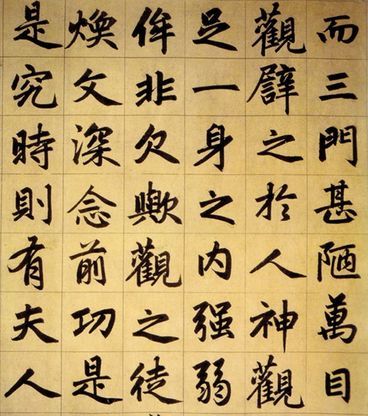 而三門甚陋萬目
觀譬之於人神觀
足一身之内强弱
侔非欠歟觀之徒
煥文深念前功是
是究時則有夫人